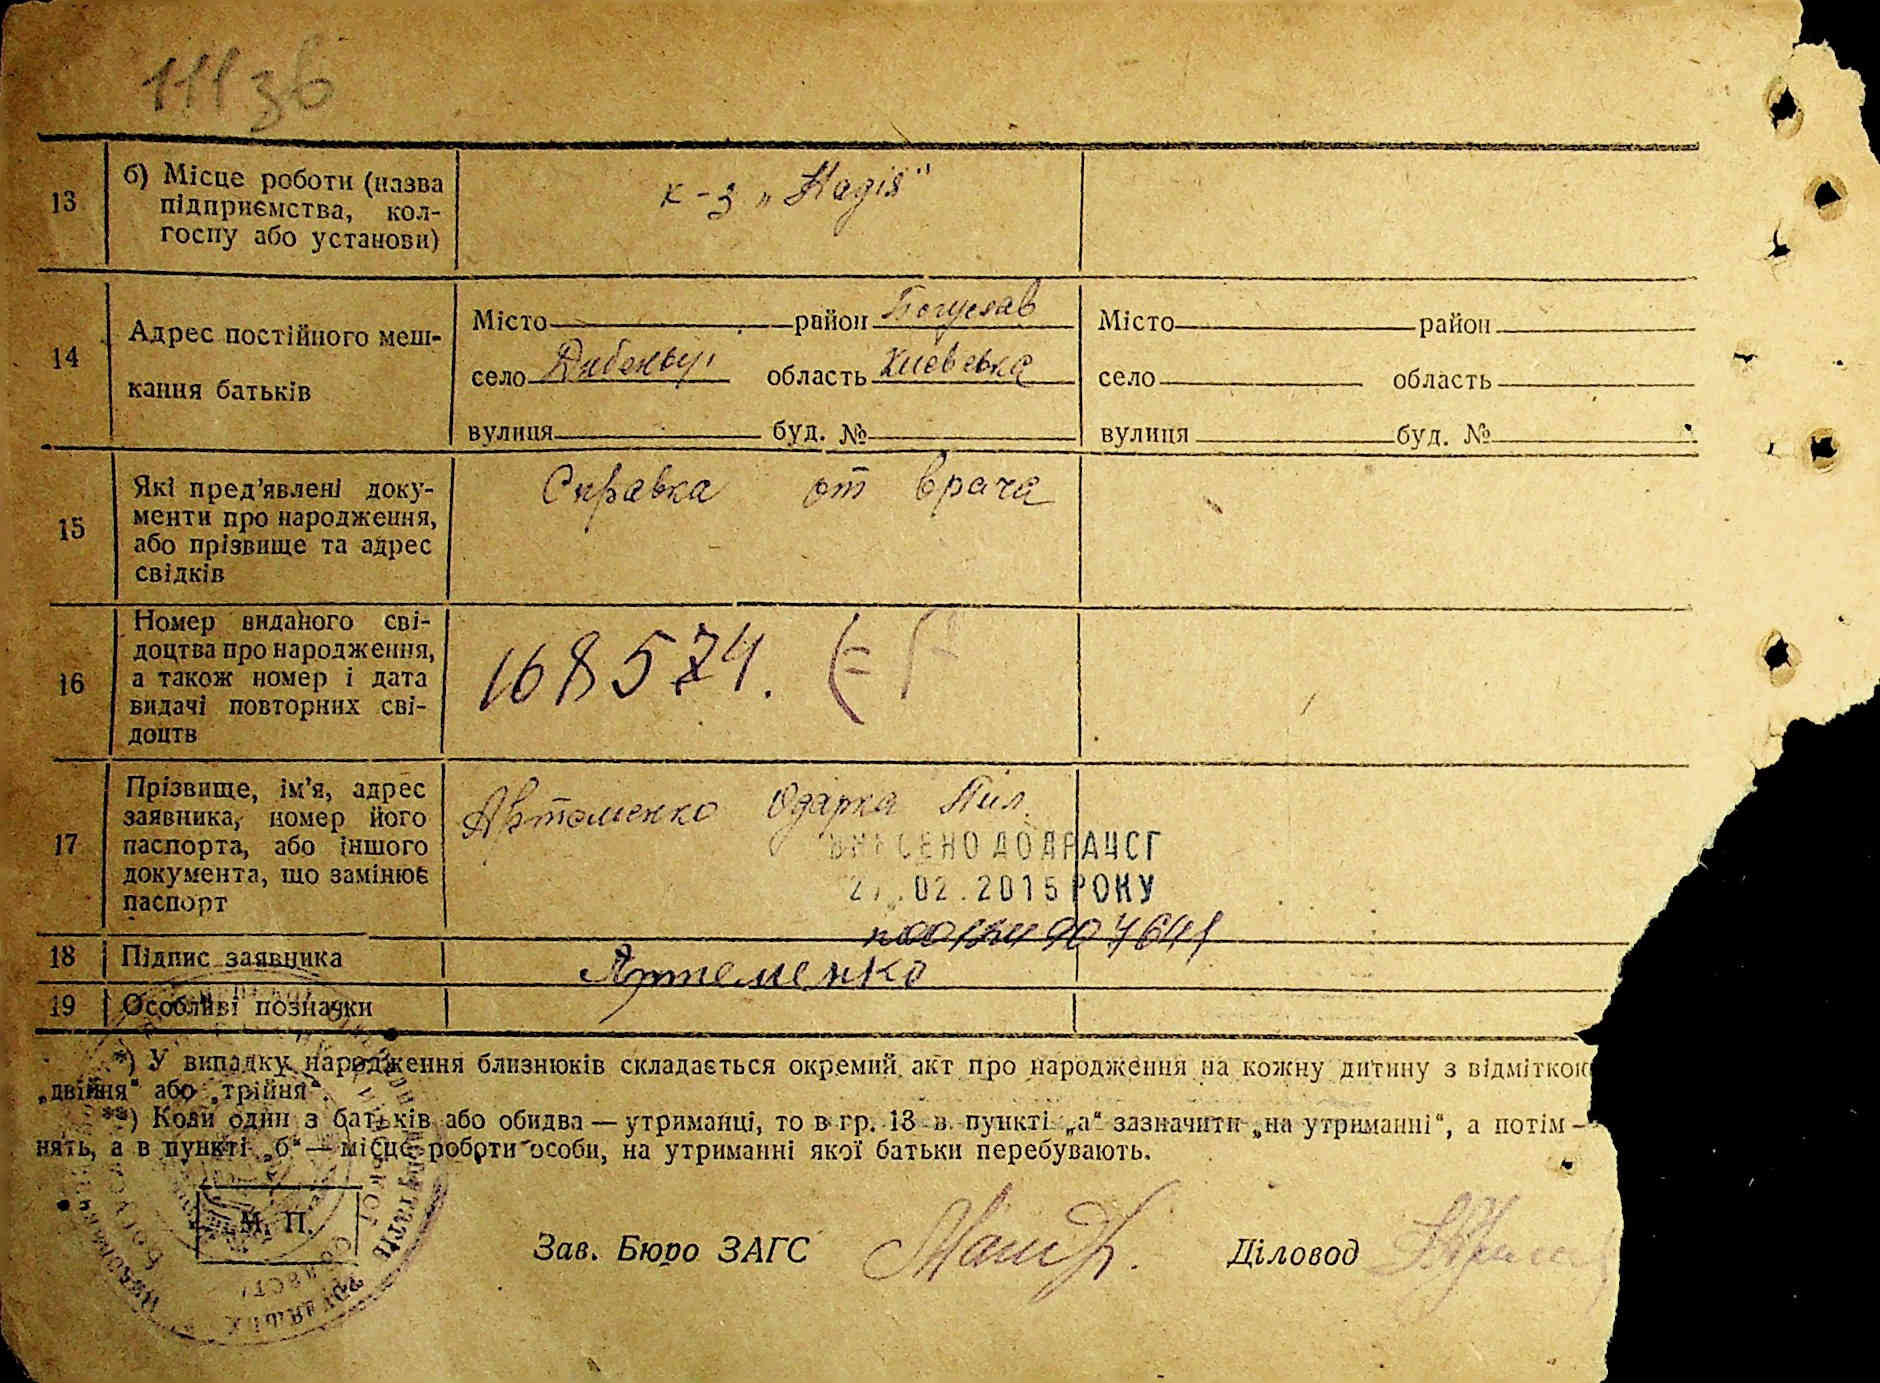 13
б) Місце роботи (назва
підприємства, кол-
госпу або установи)
к-з „Надія"
14
Адрес постійного меш-
кання батьків
Місто район Богуслав
село область Киевська
вулиця буд. №
Місто район
село область
вулиця буд. №
15
Які пред'явлені доку-
менти про народження,
або прізвище та адрес
свідків
Справка от врача
16
Номер виданого сві-
доцтва про народження,
а також номер і дата
видачі повторних сві-
доцтв
168574.
17
Прізвище, ім'я, адрес
заявника, номер його
паспорта, або іншого
документа, що замінює
паспорт
Артеменко Одарка Пил.
ВНЕСЕНО ДО ДРАЦСГ
.02.2015 РОКУ
18 Підпис заявника
Артеменко
19 Особливі позначки
*) У випадку народження близнюків складається окремий акт про народження на кожну дитину з відміткою
„двійня" або „трійня".
**) Коли один з батьків або обидва — утриманці, то в гр. 13 в пункті „а" зазначити „на утриманні", а потім —
нять, а в пункті „б" — місце роботи особи, на утриманні якої батьки перебувають.
М. П.
Зав. Бюро ЗАГС
Діловод